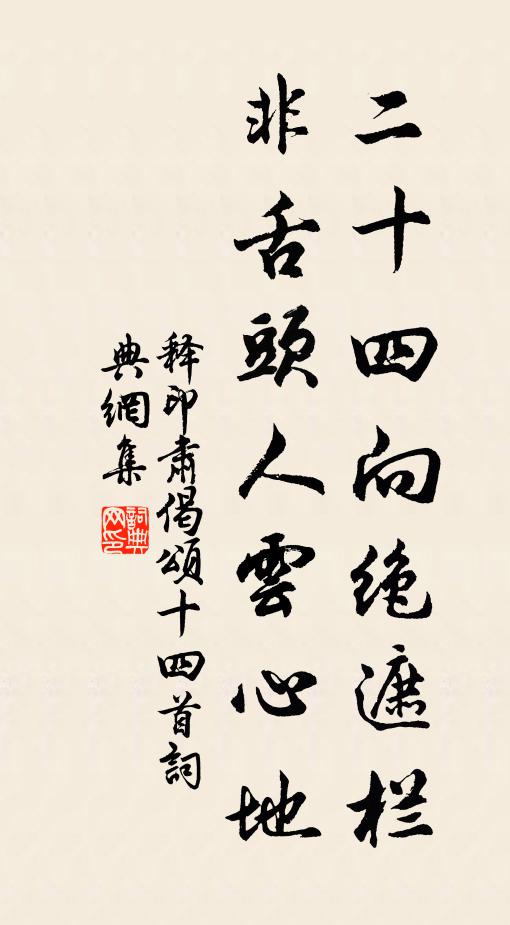 二十四向绝遮栏
非舌頭人雲心地
释印肃偈頌十四首詞
典網集
詞典网印